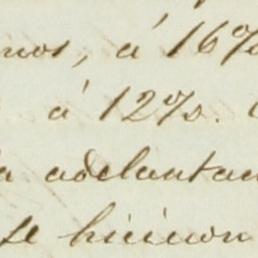 mos, á 16%
á 12%.
a adelantan
se hicieron